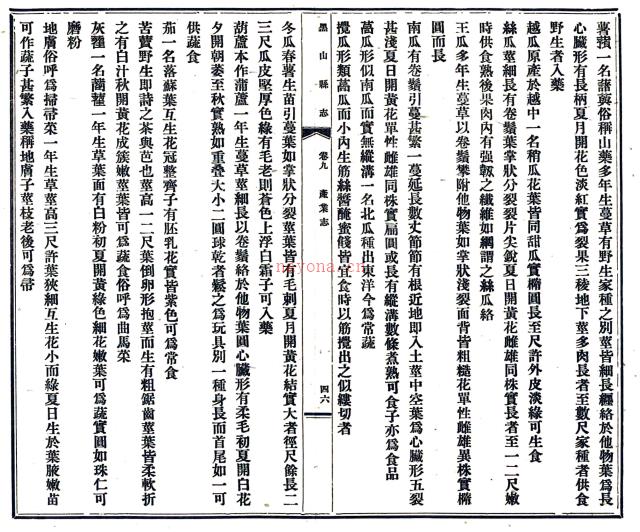 薯蕷一名諸薁俗稱山藥多年生蔓草有野生家種之別莖皆細長纏絡於他物葉爲長
心臟形有長柄夏月開花色淡紅實爲裂果三稜地下莖多肉長者至數尺家種者供食
野生者入藥
越瓜原產於越中一名稍瓜花葉皆同甜瓜實橢圓長至尺許外皮淡綠可生食
絲瓜莖細長有卷鬚葉掌狀分裂裂片尖銳夏日開黃花雌雄同株實長者至一二尺嫩
時供食熟後果肉內有强韌之纖維如網謂之絲瓜絡
王瓜多年生蔓草以卷鬚攀附他物葉如掌狀淺裂面背皆粗糙花單性雌雄異株實橢
圓而長
南瓜有卷鬚引蔓甚繁一蔓延長數丈節節有根近地即入土莖中空葉爲心臟形五裂
甚淺夏日開黃花單性雌雄同株實扁圓或長有縱溝數條煮熟可食子亦爲食品
萵瓜形似南瓜而實無縱溝一名北瓜種出東洋今爲常蔬
攪瓜形類萵瓜而小內生筋絲醬醃蜜餞皆宜食時以筋攪出之似縷切者
黑山縣志
卷九 產業志
四六
冬瓜春薯生苗引蔓葉如掌狀分裂莖葉皆有毛刺夏月開黃花結實大者徑尺餘長二
三尺瓜皮堅厚色綠有毛老則蒼色上浮白霜子可入藥
葫蘆本作蒲蘆一年生蔓草莖細長以卷鬚絡於他物葉圓心臟形有柔毛初夏開白花
夕開朝萎至秋實熟如重叠大小二圓球乾者鬆之爲玩具別一種身長而首尾如一可
供蔬食
茄一名落蘇葉互生花冠整齊子有胚乳花實皆紫色可爲常食
苦蕒野生即詩之荼與芑也莖高一二尺葉倒卵形抱莖而生有粗鋸齒莖葉皆柔軟折
之有白汁秋開黃花成簇嫩莖葉皆可爲蔬食俗呼爲曲馬菜
灰藋一名蔏藋一年生草葉面有白粉初夏開黃綠色細花嫩葉可爲蔬實圓如珠仁可
磨粉
地膚俗呼爲掃帚菜一年生草莖高三尺許葉狹細互生花小而綠夏日生於葉腋嫩苗
可作蔬子甚繁入藥稱地膚子莖枝老後可爲帚
nayona.cn